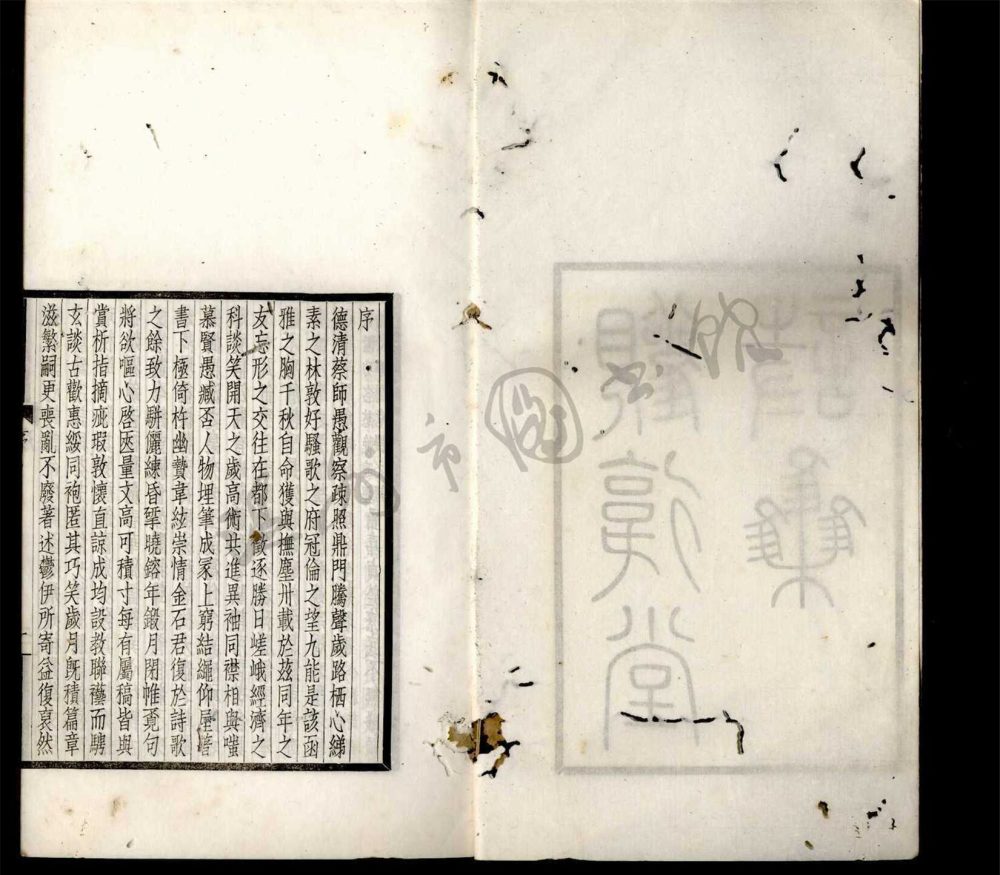 序
德清蔡師愚觀察疎照鼎門騰聲歲路栖心綈
素之林敦好騷歌之府冠倫之望九能是該函
雅之胸千秋自命獲與撫塵卅載於茲同年之
友忘形之交往在都下徵逐勝日嵯峨經濟之
科談笑開天之歲高衢共進異袖同襟相與嗤
慕賢愚臧否人物埋筆成冢上窮結繩仰屋著
書下極倚杵幽贊韋絃崇情金石君復於詩歌
之餘致力駢儷練昏揅曉鎔年鍛月閉帷覓句
將欲嘔心啓匧量文高可積寸每有屬稿皆與
賞析指摘疵瑕敦懷直諒成均設教聯藝而騁
玄談古歡惠綏同袍匿其巧笑歲月旣積篇章
滋繁嗣更喪亂不廢著述鬱伊所寄益復裒然